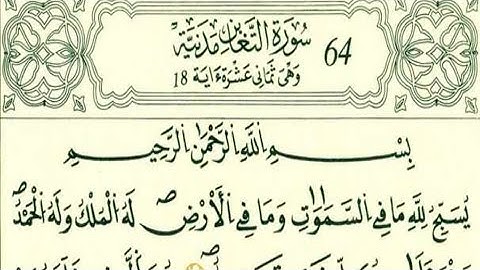 سُورَةُ التَّغَابُنِ مَدَنِيَّةٌ 64
وَهْيَ ثَمَانِي عَشْرَةَ ءَايَةً 18
بِسْمِ اللَّهِ الرَّحْمَٰنِ الرَّحِيمِ
يُسَبِّحُ لِلَّهِ مَا فِي السَّمَٰوَٰتِ وَمَا فِي الْأَرْضِ لَهُ الْمُلْكُ وَلَهُ الْحَمْدُ